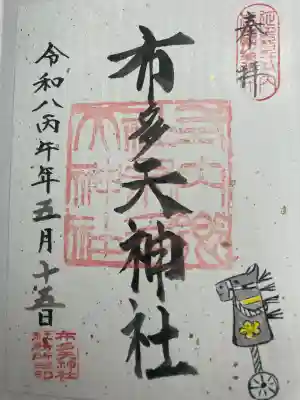 奉拝
布多天神社
令和八丙午年五月十五日
布多天神社